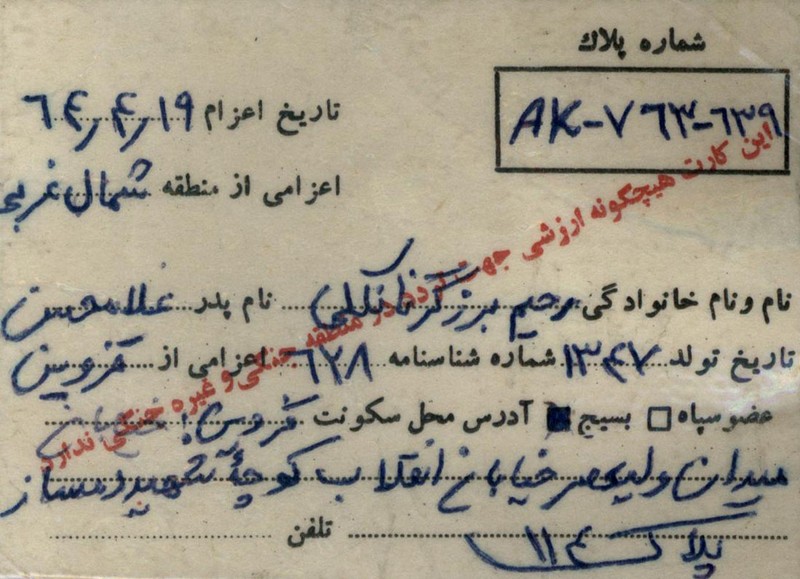 شماره پلاك
AK-۷۶۳-۶۳۹
تاریخ اعزام ۶۴٫۴٫۱۹
اعزامی از منطقه شمال غربی
این کارت هیچگونه ارزشی جهت تردد در منطقه جنگی و غیره جنگی ندارد
نام و نام خانوادگی رحیم برزگر نام پدر غلامحسن
تاریخ تولد ۱۳۴۷ شماره شناسنامه ۶۲۸ اعزامی از قزوین
عضو سپاه □ بسیج ■ آدرس محل سکونت قزوین
میدان ولیعصر خیابان انقلاب کوچه شهید دمساز
پلاک ۱۱۴
تلفن